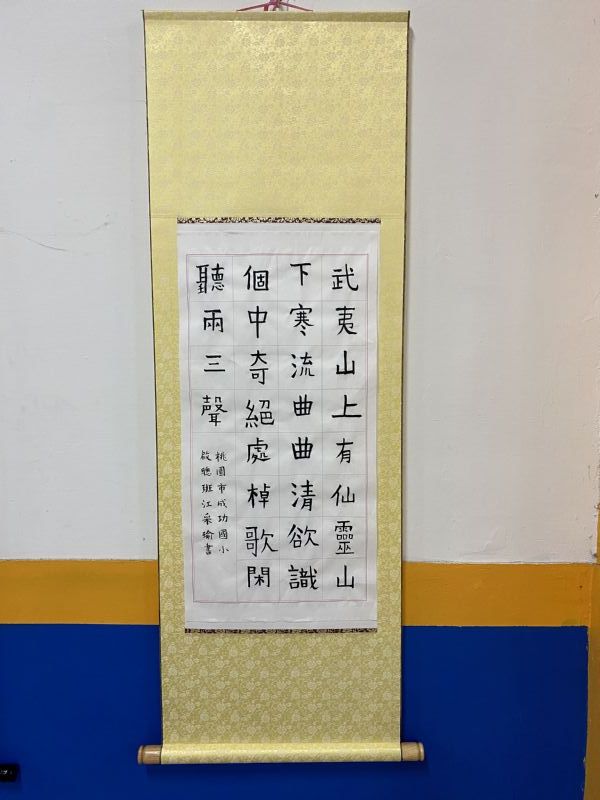 武夷山上有仙靈山
下寒流曲曲清欲識
個中奇絕處棹歌閑
聽兩三聲
桃園市成功國小
啟聰班江采瑜書